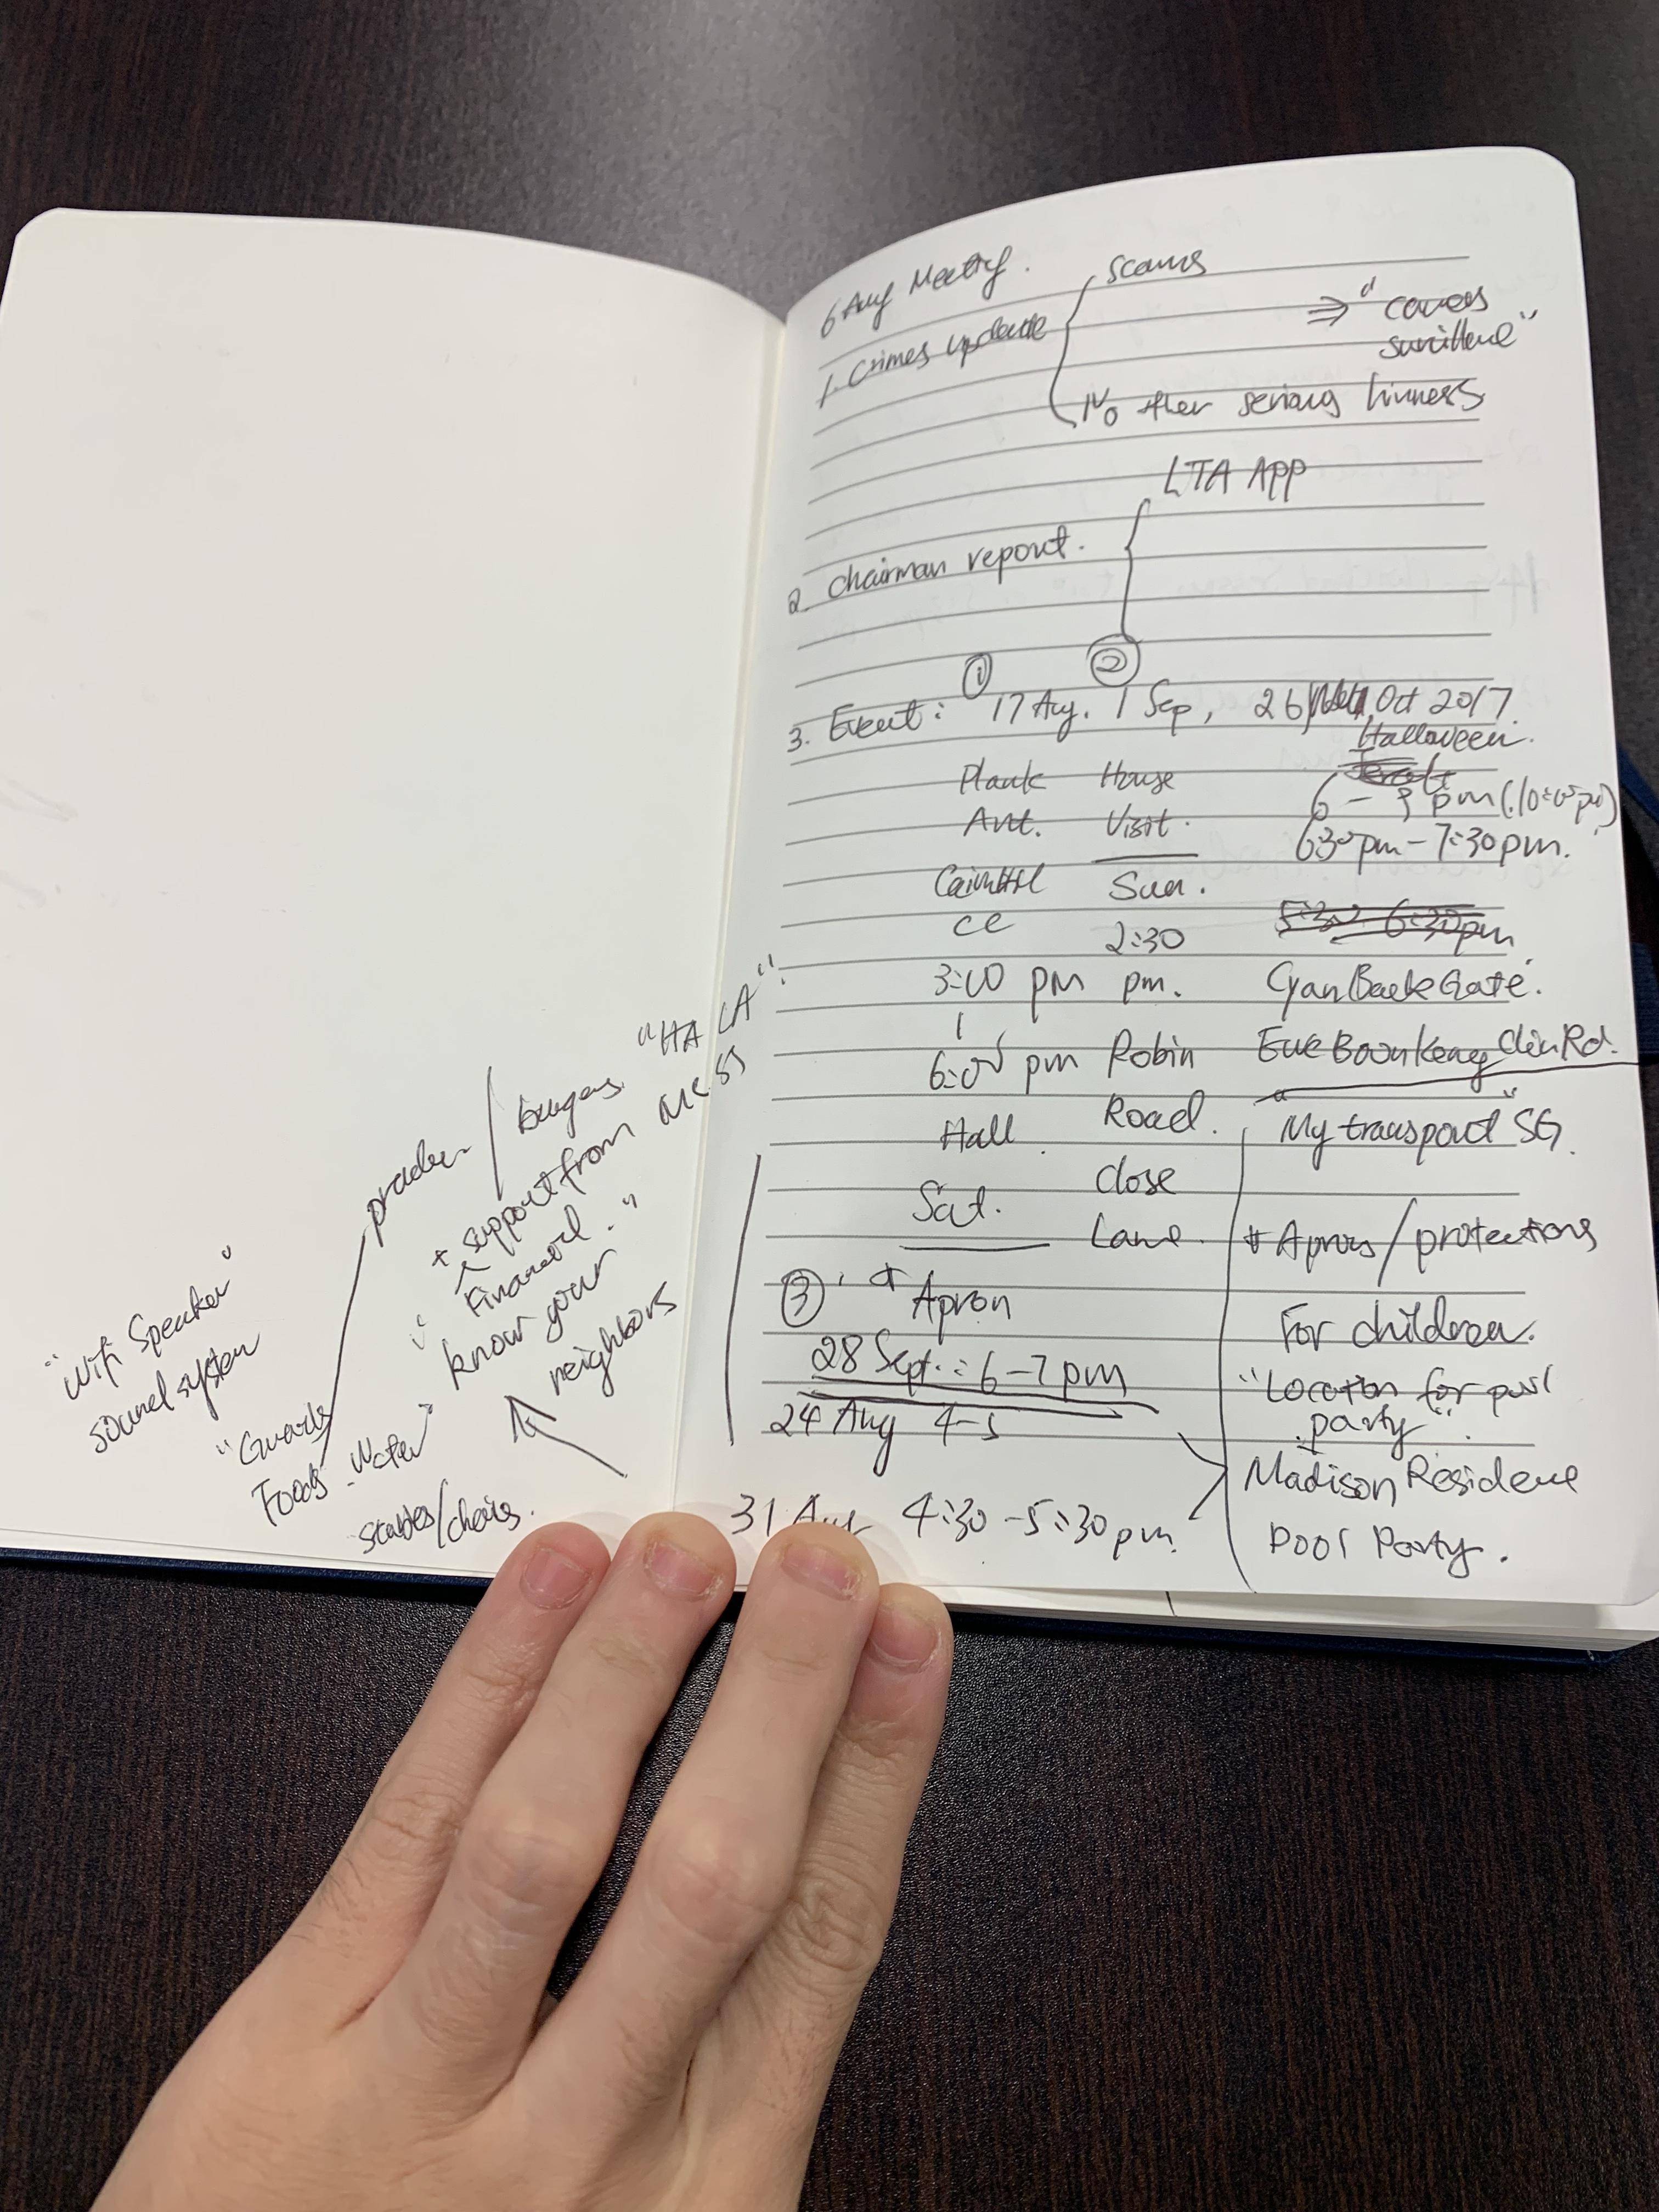 6 Aug Meeting.
1. Crimes update
scams
⇒ "
No other serious
LTA APP
2. chairman report.
① ②
3. Event: 17 Aug. 1 Sep, 26 Oct 2017.
Halloween.
House
6 - 9 pm
Ant. Visit.
6:30 pm - 7:30 pm.
Sun.
CC 2:30
5:30 6:30pm
3:00 pm pm. Back Gate.
6:00 pm Robin Boon Keng Rd.
Hall Road. "My transport" SG.
Sat. close
Lane. / protections
③ Apron
For children.
28 Sept.: 6-7 pm
"Location for pool
24 Aug 4-5 party".
Madison Residence
31 Aug 4:30 - 5:30 pm
Pool Party.
"Wifi Speaker"
sound system
"Guards
Foods Water"
/ chairs.
burgers
+ support from
Financial
"know your
neighbors"